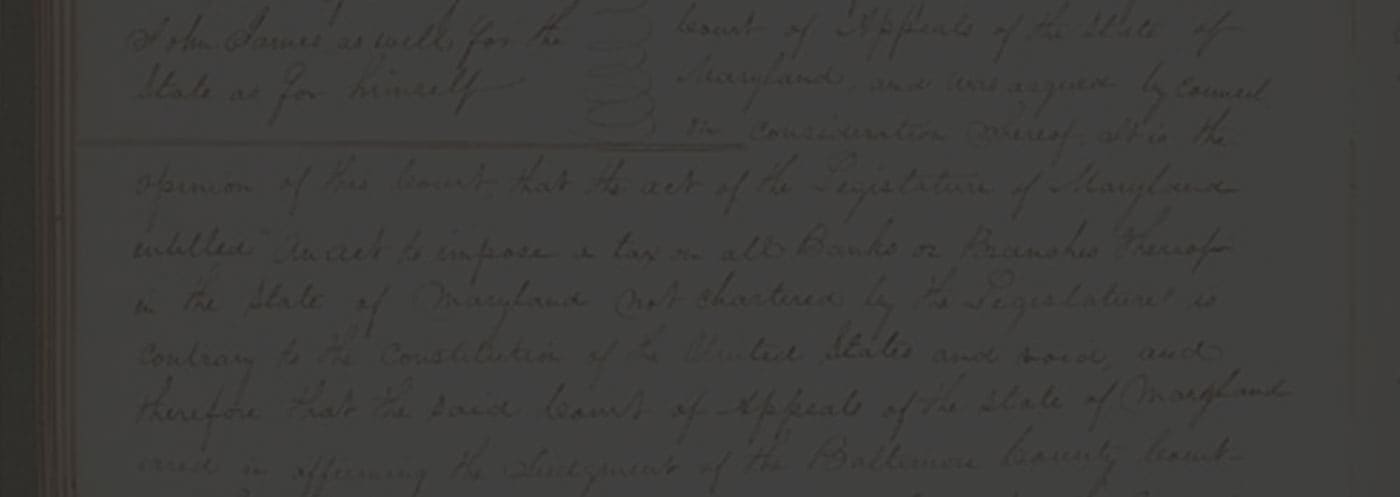 John James as well for the
State as for himself
Court of Appeals of the State of
Maryland, and was argued by counsel
on consideration whereof, it is the
opinion of this Court, that the act of the Legislature of Maryland
entitled "an act to impose a tax on all Banks or Branches thereof
in the State of Maryland not chartered by the Legislature" is
contrary to the Constitution of the United States and void, and
therefore that the said Court of Appeals of the State of Maryland
erred in affirming the Judgment of the Baltimore County Court